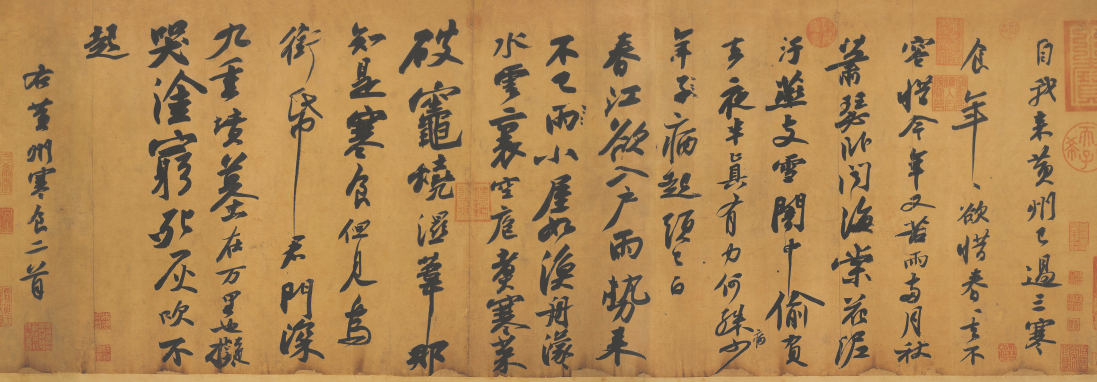 自我来黄州已過三寒
食年〻欲惜春〻去不
容惜今年又苦雨兩月秋
蕭瑟卧聞海棠花泥
汙燕支雪闇中偷負
去夜半真有力何殊少病
年子病起頭已白
春江欲入户雨勢来
不已雨小屋如漁舟濛〻
水雲裏空庖煮寒菜
破竈燒濕葦那
知是寒食但見烏
銜帋君門深
九重墳墓在万里也擬
哭塗窮死灰吹不
起
右黄州寒食二首